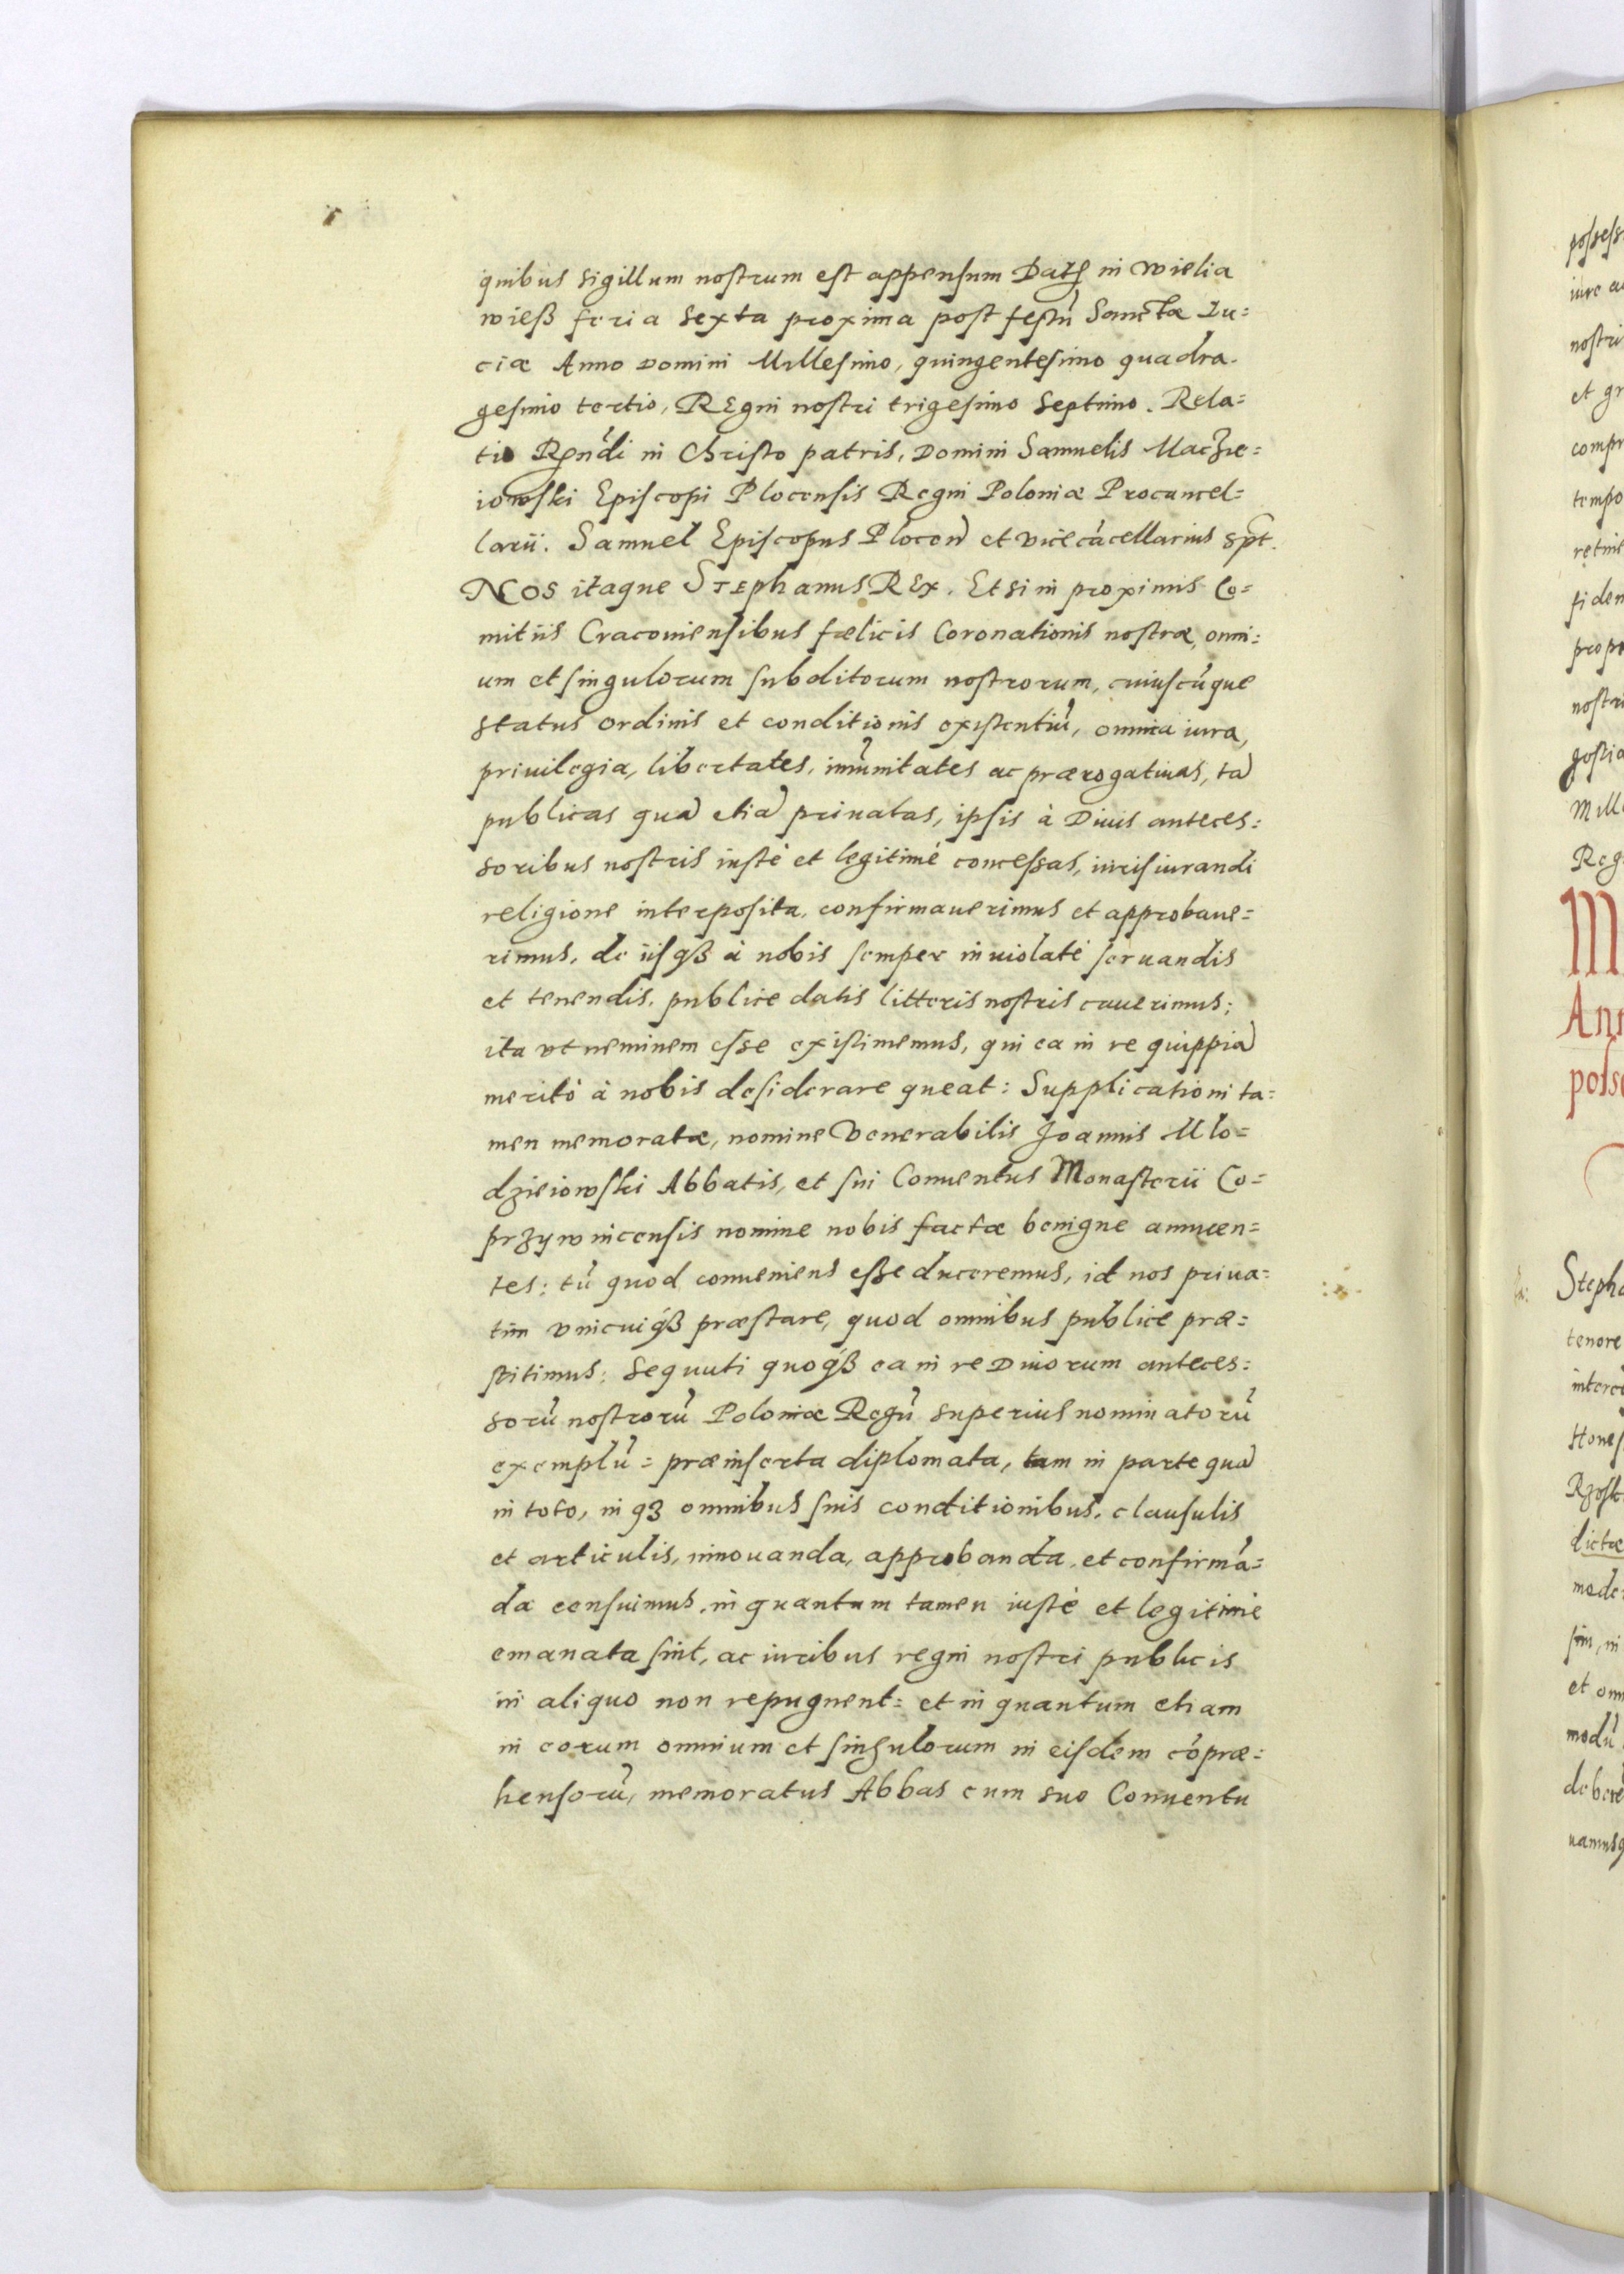 quibus sigillum nostrum est appensum Datȩ in Wielia
wieß feria sexta proxima post festū Sanctæ Lu=
ciæ Anno Domini Millesimo, quingentesimo quadra-
gesimo tertio, Regni nostri trigesimo septimo. Rela=
tio Rndi in Christo patris, Domini Samuelis Maczie=
iowski Episcopi Plocensis Regni Poloniæ Procancel=
larii. Samuel Episcopus Plocen̄ et vicecācellarius spt.
NOS itaque Stephanus Rex. Et si in proximis Co=
mitiis Cracouiensibus fælicis Coronationis nostræ, omni=
um et singulorum subditorum nostrorum, cuiuscūque
status ordinis et conditionis existentiū, omnia iura,
priuilegia, libertates, imūnitates ac prærogatiuas, tā
publicas quā etiā priuatas, ipsis à Diuis anteces=
soribus nostris iustè et legitimè concessas, iurisiurandi
religione interposita, confirmauerimus et approbaue=
rimus, de iisqȝ à nobis semper inuiolatè seruandis
et tenendis, publice datis litteris nostris cauerimus;
ita vt neminem esse existimemus, qui ea in re quippiā
meritò à nobis desiderare queat: Supplicationi ta=
men memoratæ, nomine Venerabilis Joannis Mlo=
dzieiowski Abbatis, et sui Conuentus Monasterii Co=
przywnicensis nomine nobis factæ benigne annuen=
tes: tū quod conueniens eße duceremus, id nos priua=
tim vnicuiqȝ præstare, quod omnibus publice præ=
stitimus: Sequuti quoqȝ ea in re Diuorum anteces=
sorū nostrorū Poloniæ Regū superius nominatorū
exemplū= præinserta diplomata, tam in parte quā
in toto, inqȝ omnibus suis conditionibus, clausulis
et articulis, innouanda, approbanda, et confirmā=
da censuimus, in quantum tamen iustè et legitimè
emanata sint, ac iuribus regni nostri publicis
in aliquo non repugnent= et in quantum etiam
in eorum omnium et singulorum in eisdem cōpræ=
hensorū, memoratus Abbas cum suo Conuentu
possess
iure a
nostri
et gr
compr
tempo
retine
fidem
prop
nostr
gostia
Mill
Reg
M
Ann
poss
Steph
tenore
interc
Hones
Rzosk
dictæ
mode
sim, in
et om
modū
debere
uamusq